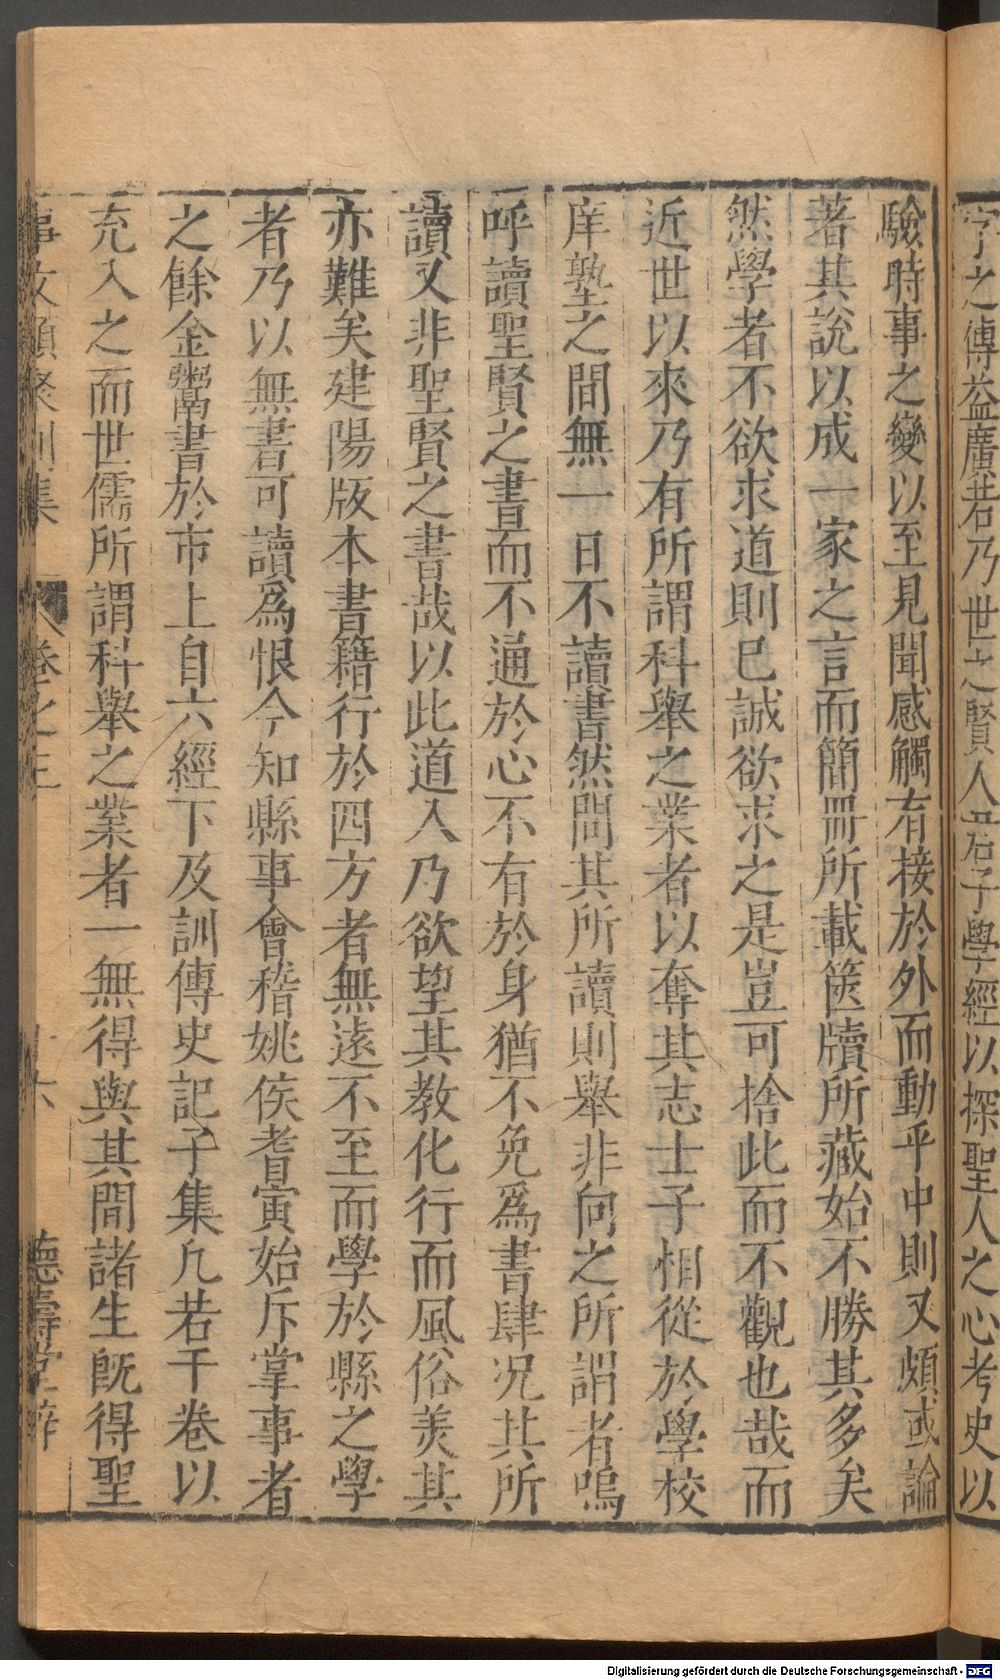 字之傳益廣若乃世之賢人君子學經以探聖人之心考史以
驗時事之變以至見聞感觸有接於外而動乎中則又頗或論
著其說以成一家之言而簡冊所載篋牘所藏始不勝其多矣
然學者不欲求道則已誠欲求之是豈可捨此而不觀也哉而
近世以來乃有所謂科舉之業者以奪其志士子相從於學校
庠塾之間無一日不讀書然問其所讀則舉非向之所謂者嗚
呼讀聖賢之書而不通於心不有於身猶不免爲書肆况其所
讀又非聖賢之書哉以此道入乃欲望其教化行而風俗羙其
亦難矣建陽版本書籍行於四方者無遠不至而學於縣之學
者乃以無書可讀爲恨今知縣事會稽姚侯耆寅始斥掌事者
之餘金鬻書於市上自六經下及訓傳史記子集凢若干卷以
充入之而世儒所謂科舉之業者一無得與其間諸生旣得聖
事文類聚別集 卷之三 十六 德壽堂梓
Digitalisierung gefördert durch die Deutsche Forschungsgemeinschaft - DFG